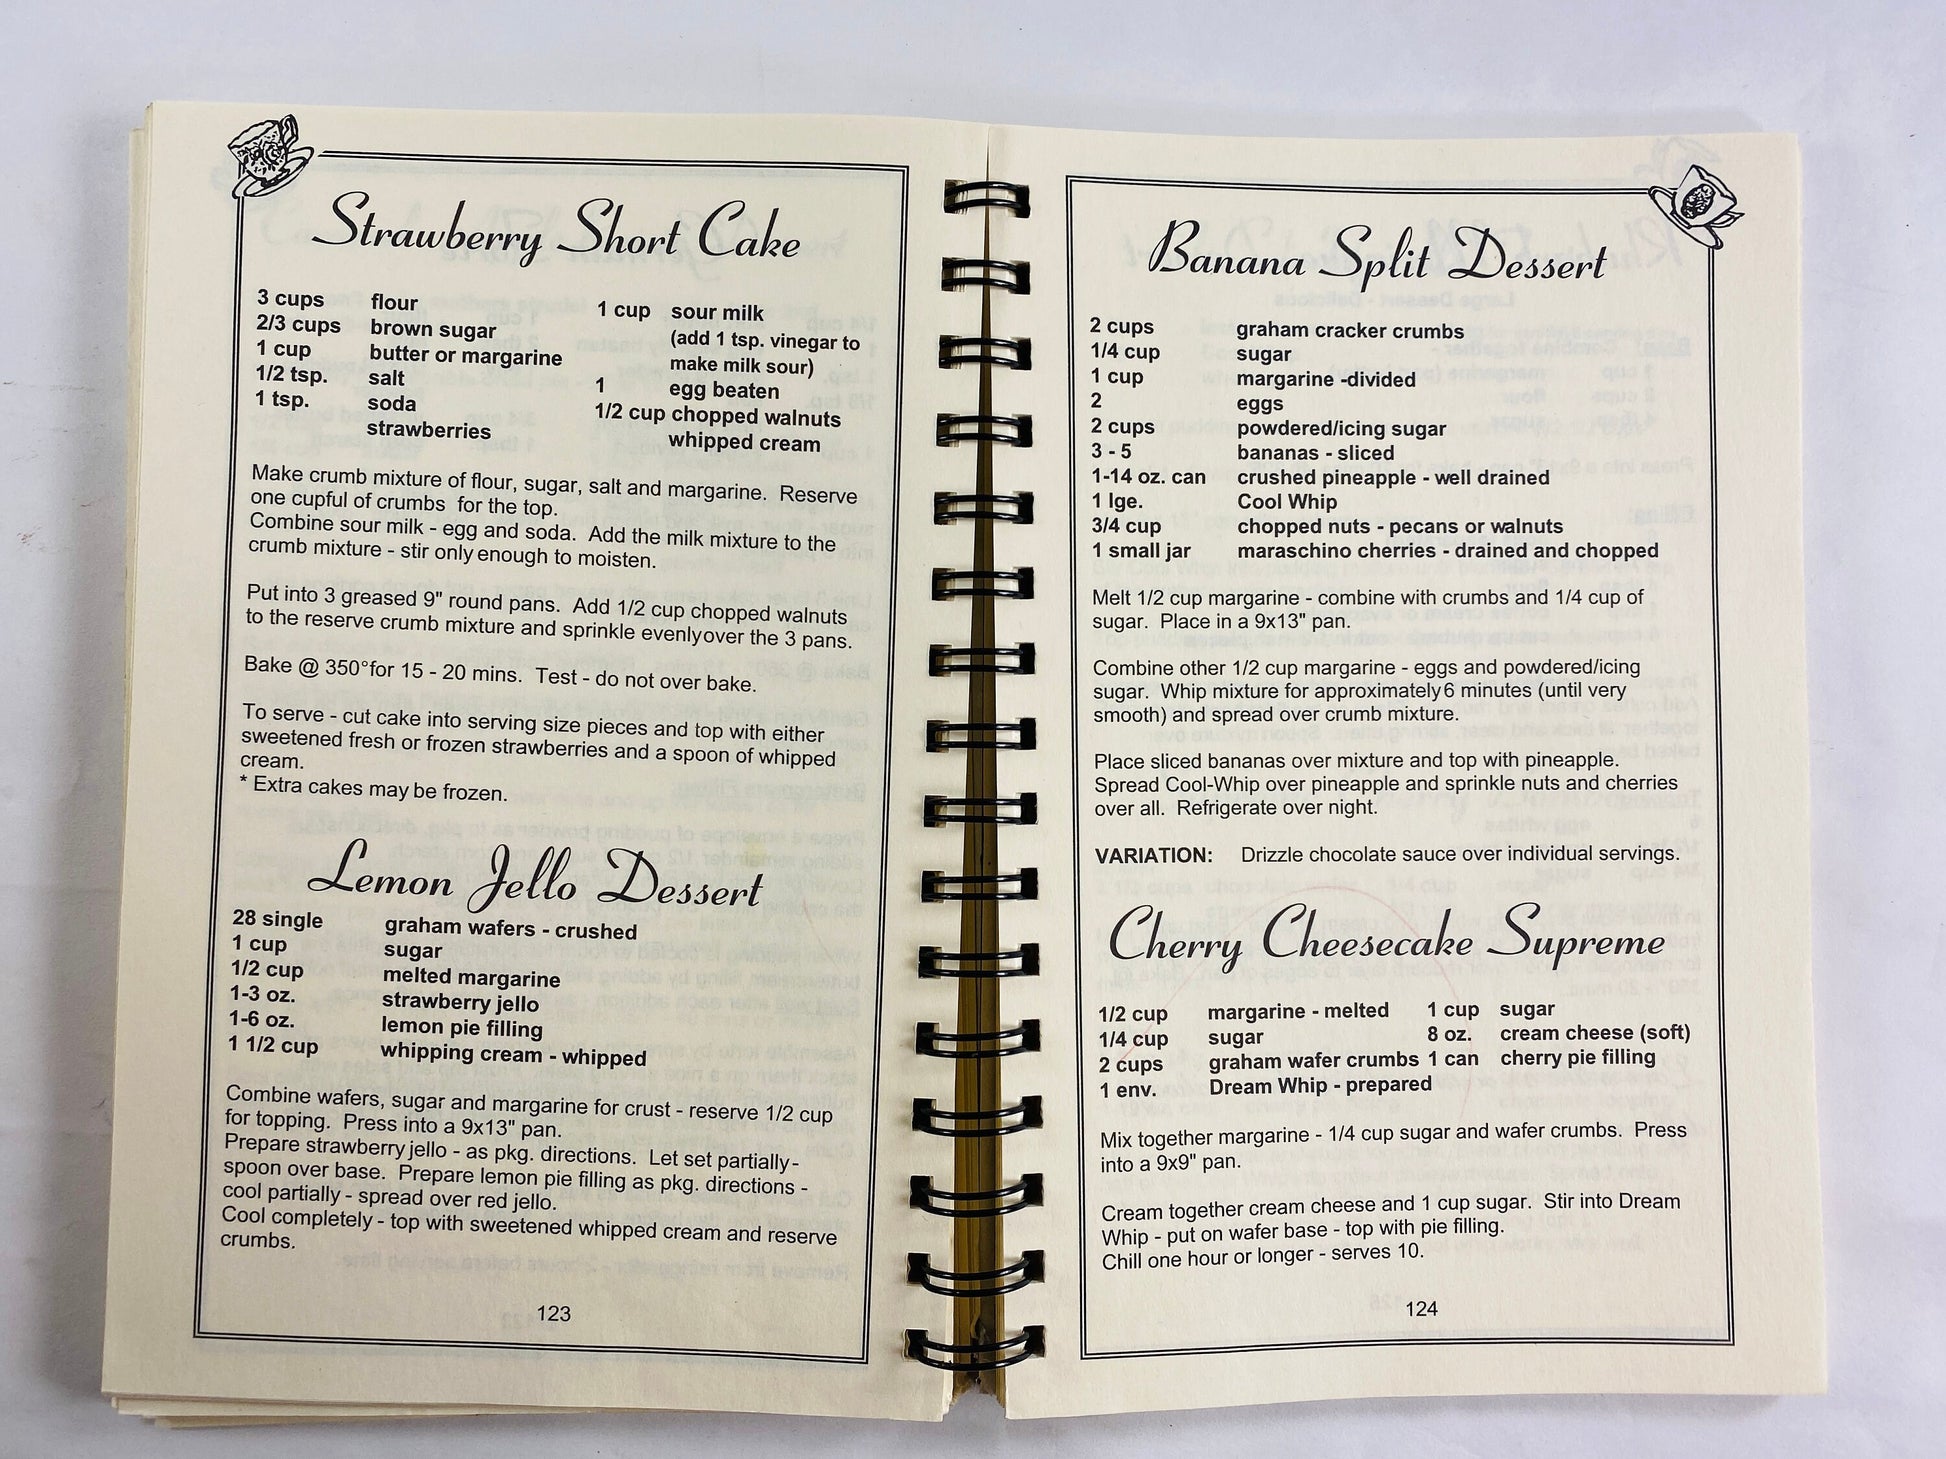 Strawberry Short Cake
3 cups flour
2/3 cups brown sugar
1 cup butter or margarine
1/2 tsp. salt
1 tsp. soda
strawberries
1 cup sour milk
(add 1 tsp. vinegar to
make milk sour)
1 egg beaten
1/2 cup chopped walnuts
whipped cream
Make crumb mixture of flour, sugar, salt and margarine. Reserve
one cupful of crumbs for the top.
Combine sour milk - egg and soda. Add the milk mixture to the
crumb mixture - stir only enough to moisten.
Put into 3 greased 9" round pans. Add 1/2 cup chopped walnuts
to the reserve crumb mixture and sprinkle evenlyover the 3 pans.
Bake @ 350°for 15 - 20 mins. Test - do not over bake.
To serve - cut cake into serving size pieces and top with either
sweetened fresh or frozen strawberries and a spoon of whipped
cream.
* Extra cakes may be frozen.
Lemon Jello Dessert
28 single graham wafers - crushed
1 cup sugar
1/2 cup melted margarine
1-3 oz. strawberry jello
1-6 oz. lemon pie filling
1 1/2 cup whipping cream - whipped
Combine wafers, sugar and margarine for crust - reserve 1/2 cup
for topping. Press into a 9x13" pan.
Prepare strawberry jello - as pkg. directions. Let set partially-
spoon over base. Prepare lemon pie filling as pkg. directions -
cool partially - spread over red jello.
Cool completely - top with sweetened whipped cream and reserve
crumbs.
123
Banana Split Dessert
2 cups graham cracker crumbs
1/4 cup sugar
1 cup margarine -divided
2 eggs
2 cups powdered/icing sugar
3 - 5 bananas - sliced
1-14 oz. can crushed pineapple - well drained
1 lge. Cool Whip
3/4 cup chopped nuts - pecans or walnuts
1 small jar maraschino cherries - drained and chopped
Melt 1/2 cup margarine - combine with crumbs and 1/4 cup of
sugar. Place in a 9x13" pan.
Combine other 1/2 cup margarine - eggs and powdered/icing
sugar. Whip mixture for approximately 6 minutes (until very
smooth) and spread over crumb mixture.
Place sliced bananas over mixture and top with pineapple.
Spread Cool-Whip over pineapple and sprinkle nuts and cherries
over all. Refrigerate over night.
VARIATION: Drizzle chocolate sauce over individual servings.
Cherry Cheesecake Supreme
1/2 cup margarine - melted
1/4 cup sugar
2 cups graham wafer crumbs
1 env. Dream Whip - prepared
1 cup sugar
8 oz. cream cheese (soft)
1 can cherry pie filling
Mix together margarine - 1/4 cup sugar and wafer crumbs. Press
into a 9x9" pan.
Cream together cream cheese and 1 cup sugar. Stir into Dream
Whip - put on wafer base - top with pie filling.
Chill one hour or longer - serves 10.
124